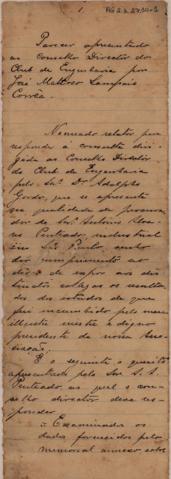 1.
Parecer apresentado
ao Conselho Director do
Club de Engenharia por
José Mattoso Sampaio
Corrêa.
Nomeado relator para
responder á consulta diri-
gida ao Conselho Director
do Club de Engenharia
pelo Snr. Dr. Adolpho
Gordo, que se apresenta
na qualidade de procura-
dor do Snr. Antonio
Penteado, industrial
em São Paulo, venho
dar cumprimento ao
de expor aos dis-
tinctos collegas os resulta-
dos dos estudos de que
fui incumbido pelo nosso
illustre mestre e digno
presidente da nossa Asso-
ciação.
É o seguinte o quesito
apresentado pelo Snr. A. A.
Penteado, ao qual o con-
selho director deve res-
ponder
Examinados os
dados fornecidos pelo
memorial annexo sobre